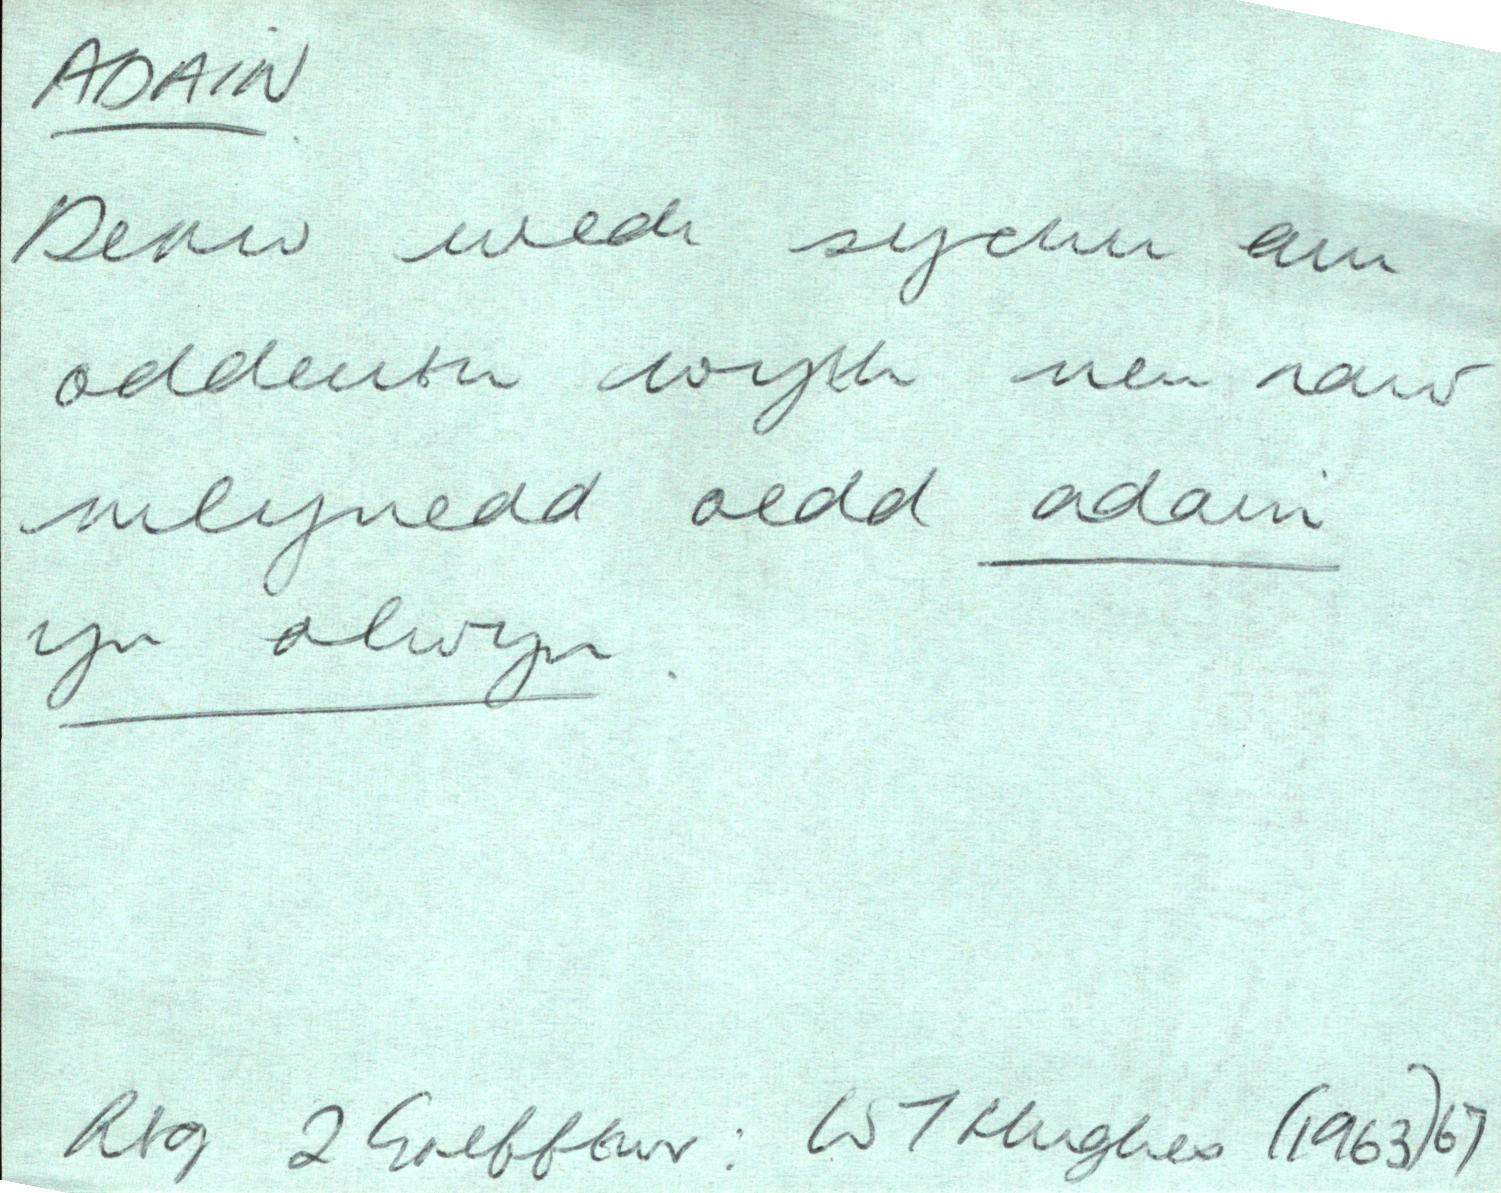 ADAIN
Derw wedi sychu am
oddeutu wyth neu naw
mlynedd oedd adain
yn olwyn.
2 Grefftwr: W T Hughes (1963) 67